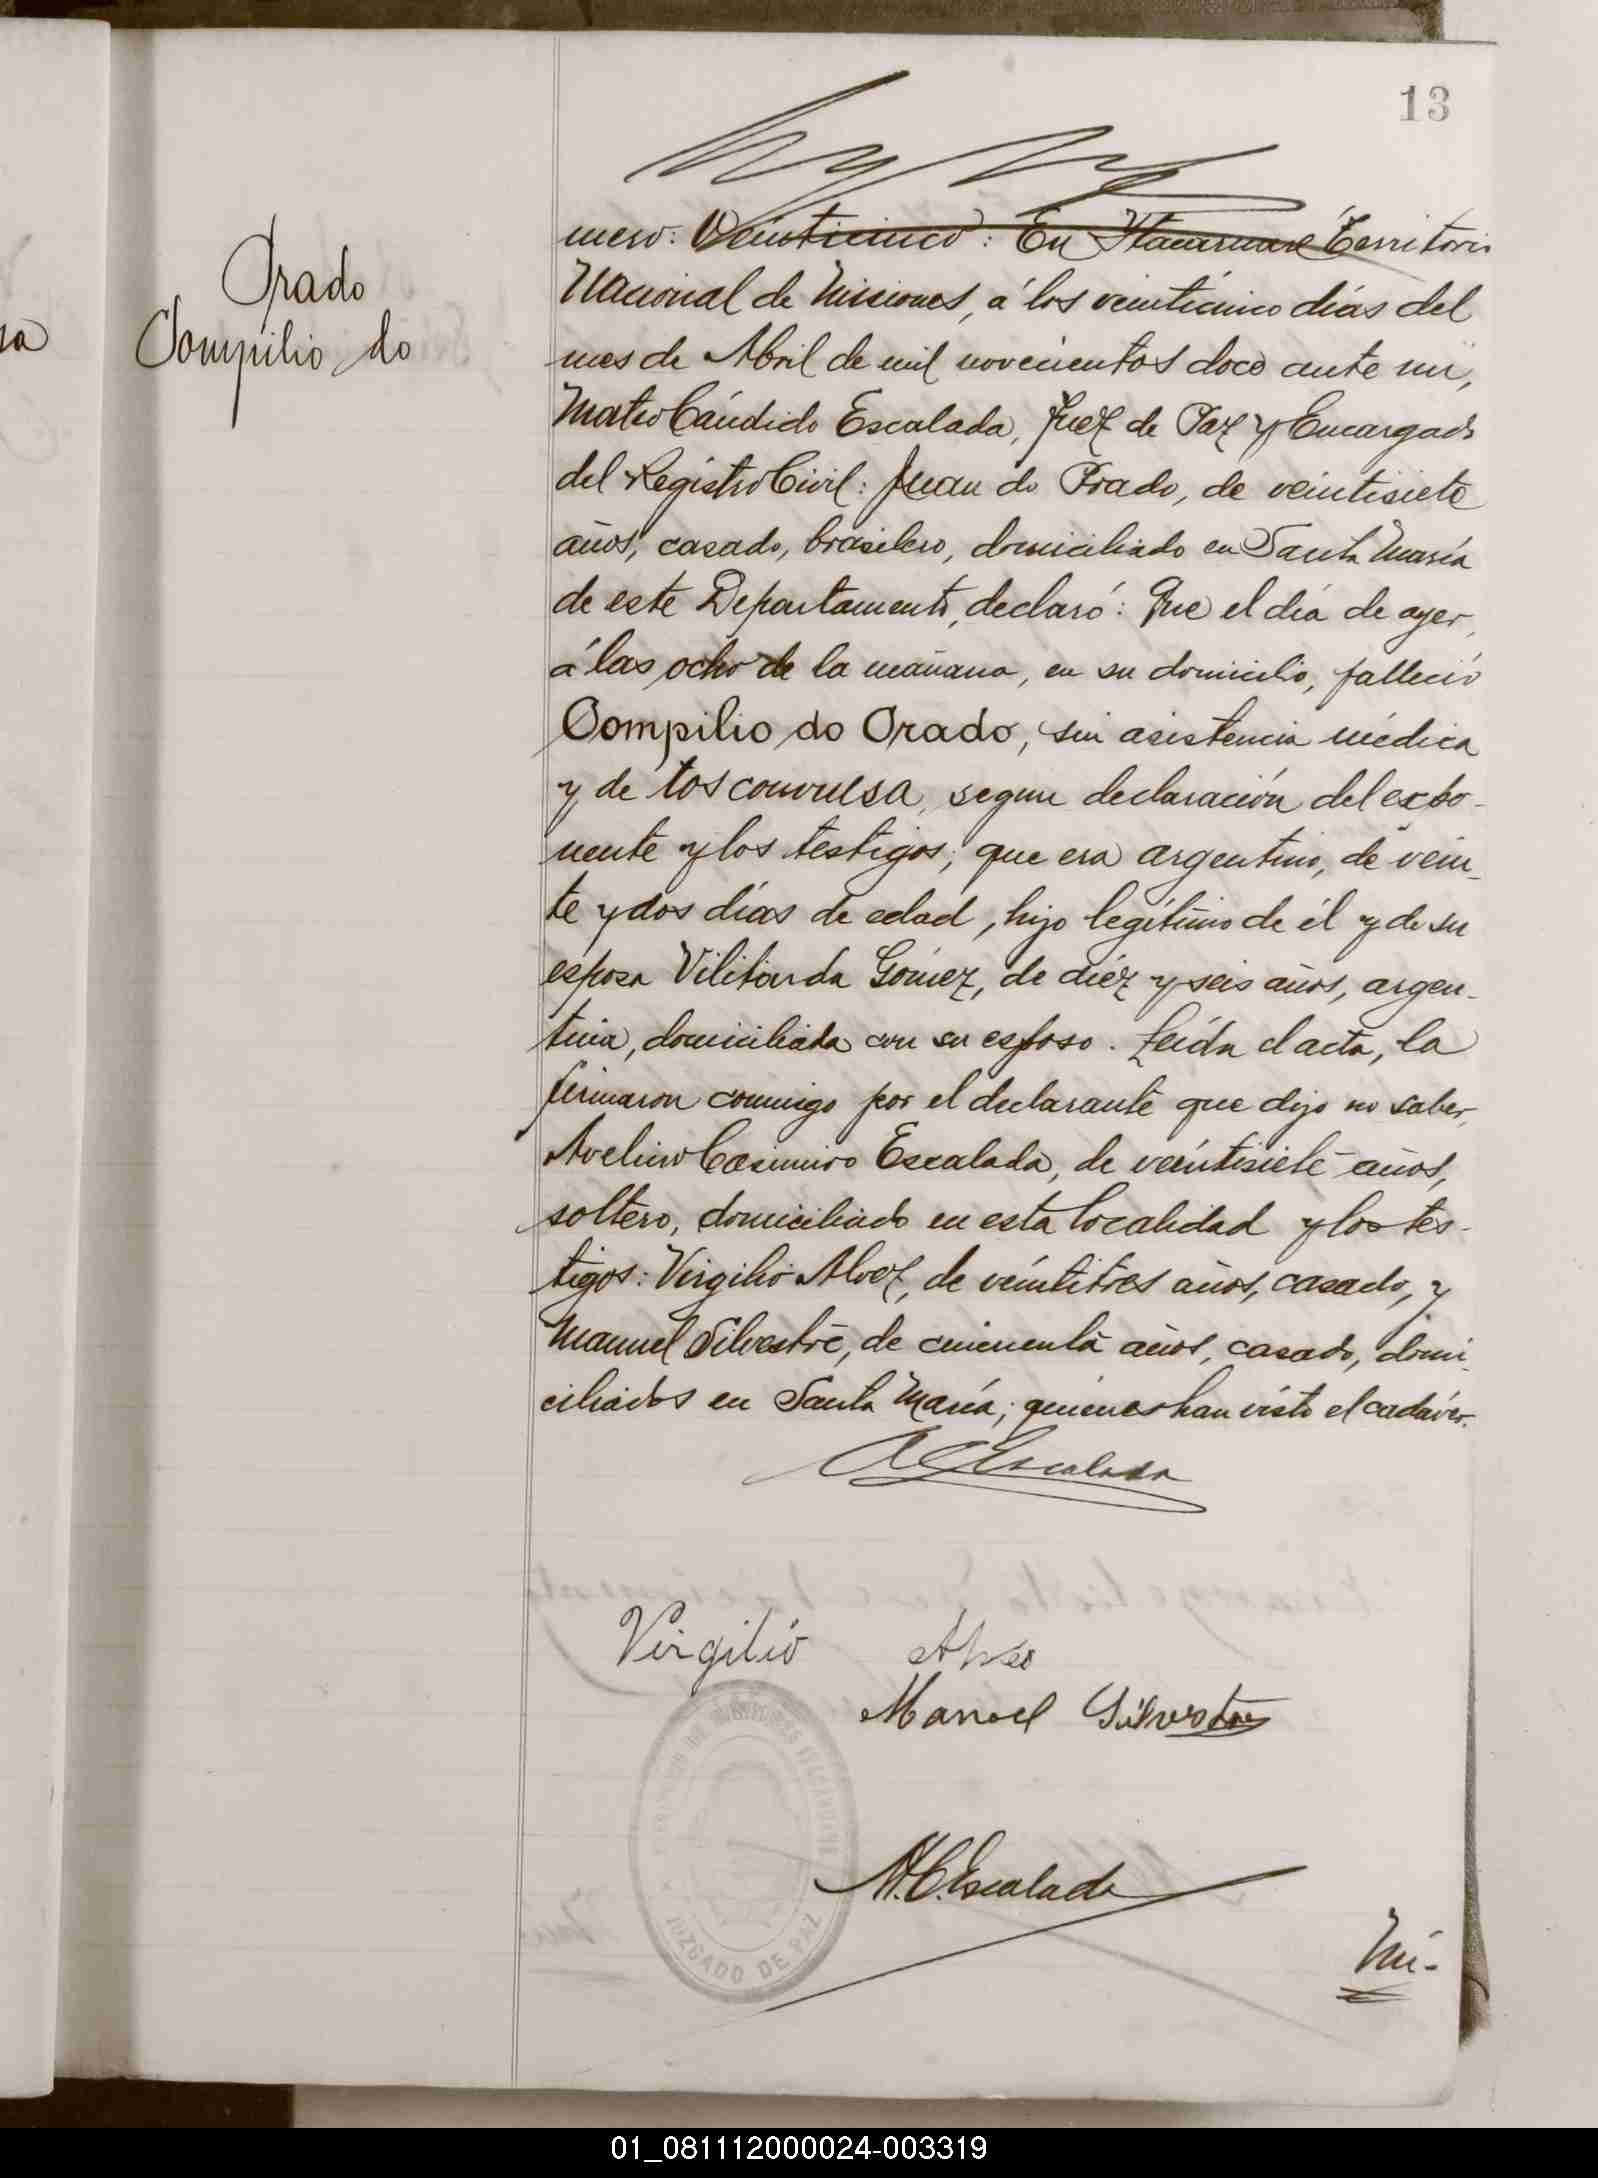 13
mero: Veinticinco: En Itacaruaré Territorio
Prado
Pompilio do
Nacional de Misiones, á los veinticinco días del
mes de Abril de mil novecientos doce ante mi,
Mateo Cándido Escalada, Juez de Paz y Encargado
del Registro Civil: Juan do Prado, de veintisiete
años, casado, brasilero, domiciliado en Santa María
de este Departamento, declaró: Que el día de ayer,
á las ocho de la mañana, en su domicilio, falleció
Pompilio do Prado, sin asistencia médica
y de tos convulsa, segun declaración del expo-
nente y los testigos; que era argentino, de vein-
te y dos días de edad, hijo legítimo de él y de su
esposa Gómez, de diéz y seis años, argen-
tina, domiciliada con su esposo. Leída el acta, la
firmaron conmigo por el declarante que dijo no saber,
Avelino Casimiro Escalada, de veintisiete años,
soltero, domiciliado en esta localidad y los tes-
tigos: Virgilio Alvez, de veintitres años, casado, y
Manuel Silvestre, de cincuenta años, casado, domi-
ciliados en Santa María; quienes han visto el cadáver.
A C Escalada
Virgilio
Manoel Silvestre
M. C. Escalada
JUZGADO DE PAZ
Nú-
01_081112000024-003319